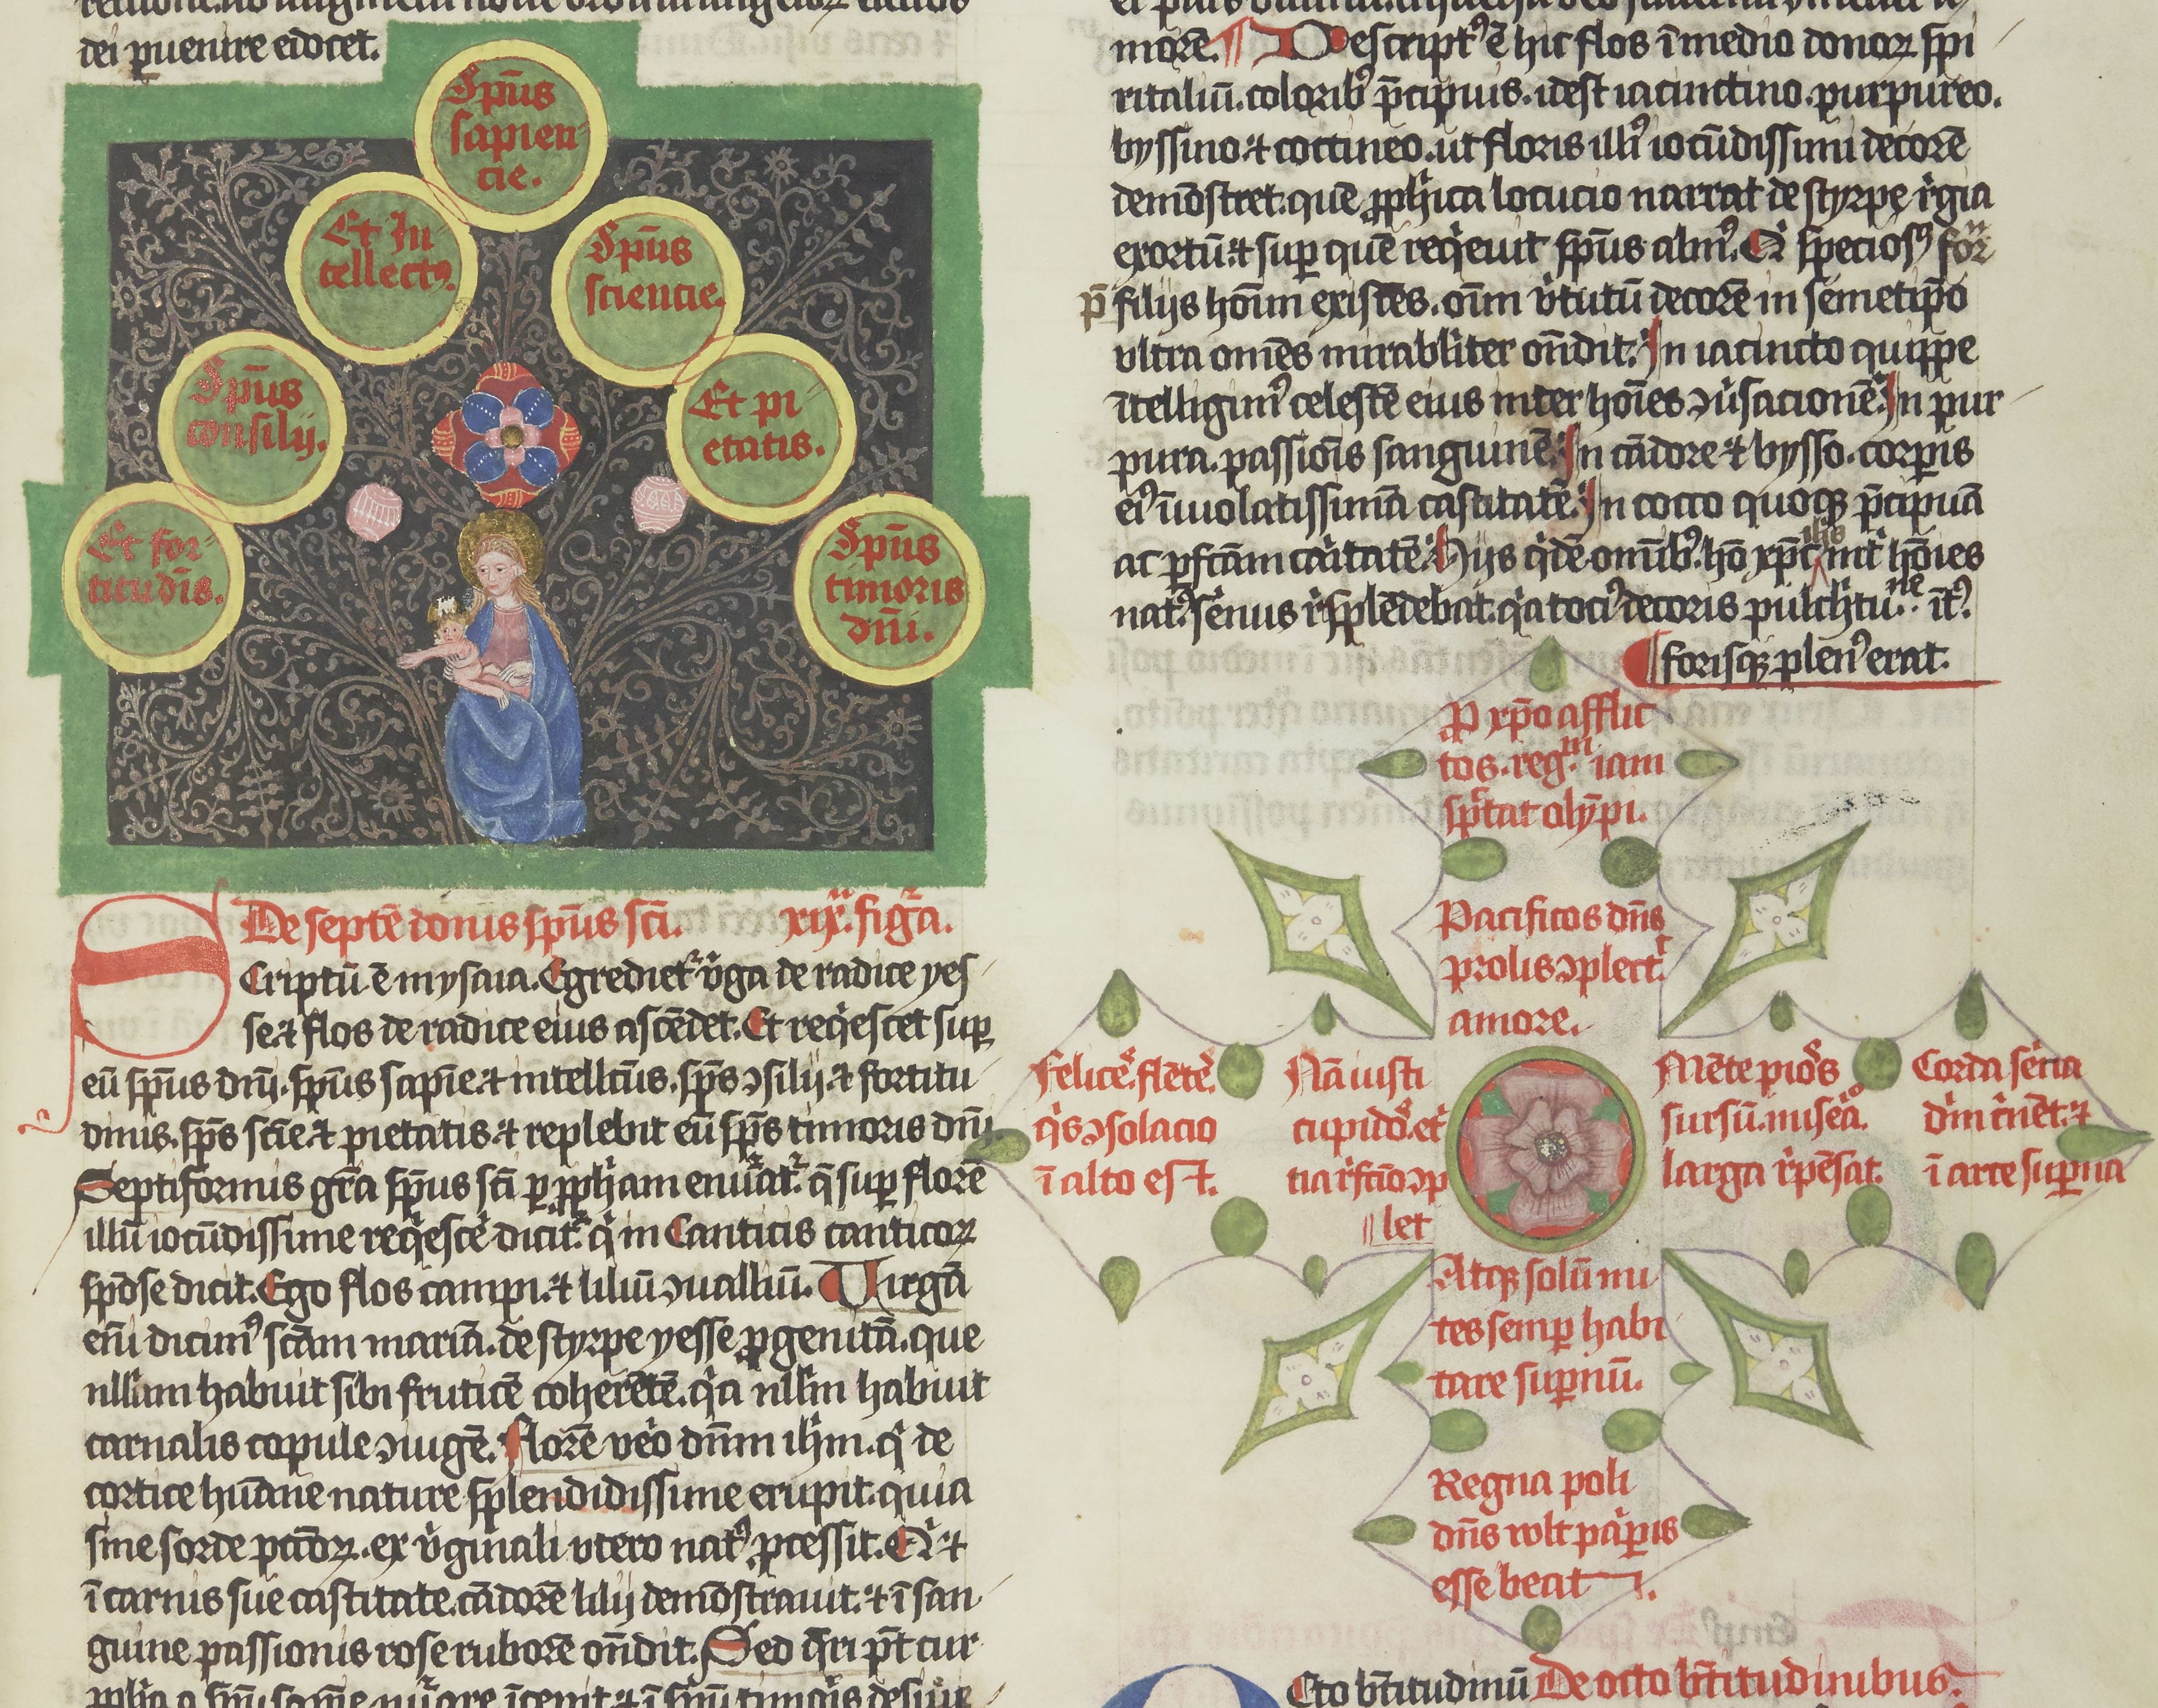 dei ꝑuenire edocet.
Sp̄us
sapien
cie.
Et In
tellectꝰ.
Sp̄us
sciencie.
Sp̄us
consilij.
Et pi
etatis.
Et for
titudīs.
Sp̄us
timoris
dn̄i.
De septē donis sp̄us sc̄i. xix. figᷓa.
Scriptū ē in ysaia. Egrediet᷑ v̓ga de radice yes
se ⁊ flos de radice eius ascēdet. Et req̇escet suꝑ
eū sp̄us dn̄i. sp̄us sapīe ⁊ intellc̄us. sp̄s ꝯsilij ⁊ fortitu
dinis. sp̄s scīe ⁊ pietatis ⁊ replebit eū sp̄s timoris dn̄i
Septiformis gr̄a sp̄us sc̄i ꝑ ꝓph̄am enūat᷑. q̄ suꝑ florē
illū iocūdissime req̇escē dicit᷑. q̇ in Canticis canticoꝝ
spōse dicit. Ego flos campi. ⁊ liliū ꝯualliū. Virgā
eni̅ dicimꝰ sc̄am mariā. de styrpe yesse ꝓgenitā. que
nllam habuit sibi fruticē coherētē. q̇a nllm̄ habuit
carnalis copule ꝯiugē. Florē v̓o dn̄m ih̄m. q̇ de
cortice hūane nature splendidissime erupit. quia
sine sorde pcc̄oꝝ. ex v̓ginali vtero natꝰ ꝓcessit. Q̇ ⁊
ī carnis sue castitate. cādorē lilij demōstrauit. ⁊ ī san
guine passionis rose ruborē on̄dit. Sed q̄ri p̄t cur
morē. Descriptꝰ ē hic flos ī medio donoꝝ spi
ritaliū. coloribꝰ p̄cipuis. idest iacinctino. purpureo.
byssino. ⁊ coccineo. ut floris illiꝰ iocūdissimi decorē
demōstret. quē ꝓph̓ica locucio narrat de styrpe r̓gia
exortū. ⁊ suꝑ quē req̇euit sp̄us almꝰ. Q̇ speciosꝰ for
p̄ filijs hoīm existēs. oīm v̓tutū decorē in semetip̄o
vltra omēs mirabiliter on̄dit. In iacincto quippe
ītelligimꝰ celestē eius inter hoīes ꝯu̓sacionē. In pur
pura. passiōis sanguinē. In cādore ⁊ bysso. corꝑis
eiꝰ īuiolatissimā castitatē. In cocco quoqꝫ p̄cipuā
ac ꝑfc̄am caritatē. Hijs q̇dē omībꝰ. ho xp̄c ih̄s int̓ hoīes
natꝰ. r̓splēdebat. q̇a tociꝰ decoris pulch̓tu. ne īt᷒.
forisqꝫ plenꝰ erat.
P xp̄o afflic
tos. regm̄ iam
sp̄tat olȳpi.
Pacificos dn̄s
prolis ꝯplect᷑
amore.
Felicēs flētēs.
q̇s ꝯsolacio
ī alto est.
Nā iusti
cupidos. et
cia rfc̄io ꝯp
let
Mēte pios
sursū. misēa.
larga r̓pēsat.
Corda sēna
dm̄ c̓nēt. ⁊
ī arce suꝑna
Atqꝫ solū mi
tes semꝑ habi
tare suꝑnū.
Regna poli
dn̄s vult pauꝑis
esse beati.
Octo bt̄itudinū De octo bt̄itudinibus.